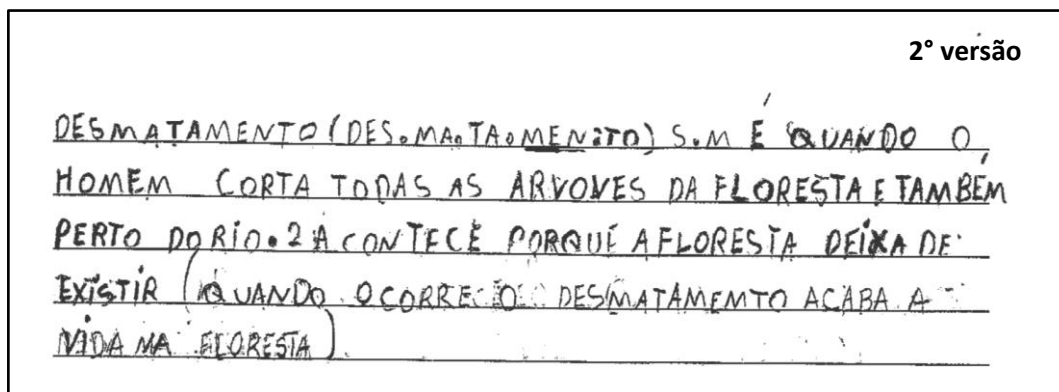 2° versão
DESMATAMENTO (DES.MA.TA.MEN.TO) S.M É QUANDO O
HOMEM CORTA TODAS AS ARVOVES DA FLORESTA E TAMBÉM
PERTO DO RIO. 2 ACONTECE PORQUE A FLORESTA DEIXA DE
EXISTIR (QUANDO OCORRE O DESMATAMEMTO ACABA A
VIDA NA FLORESTA).